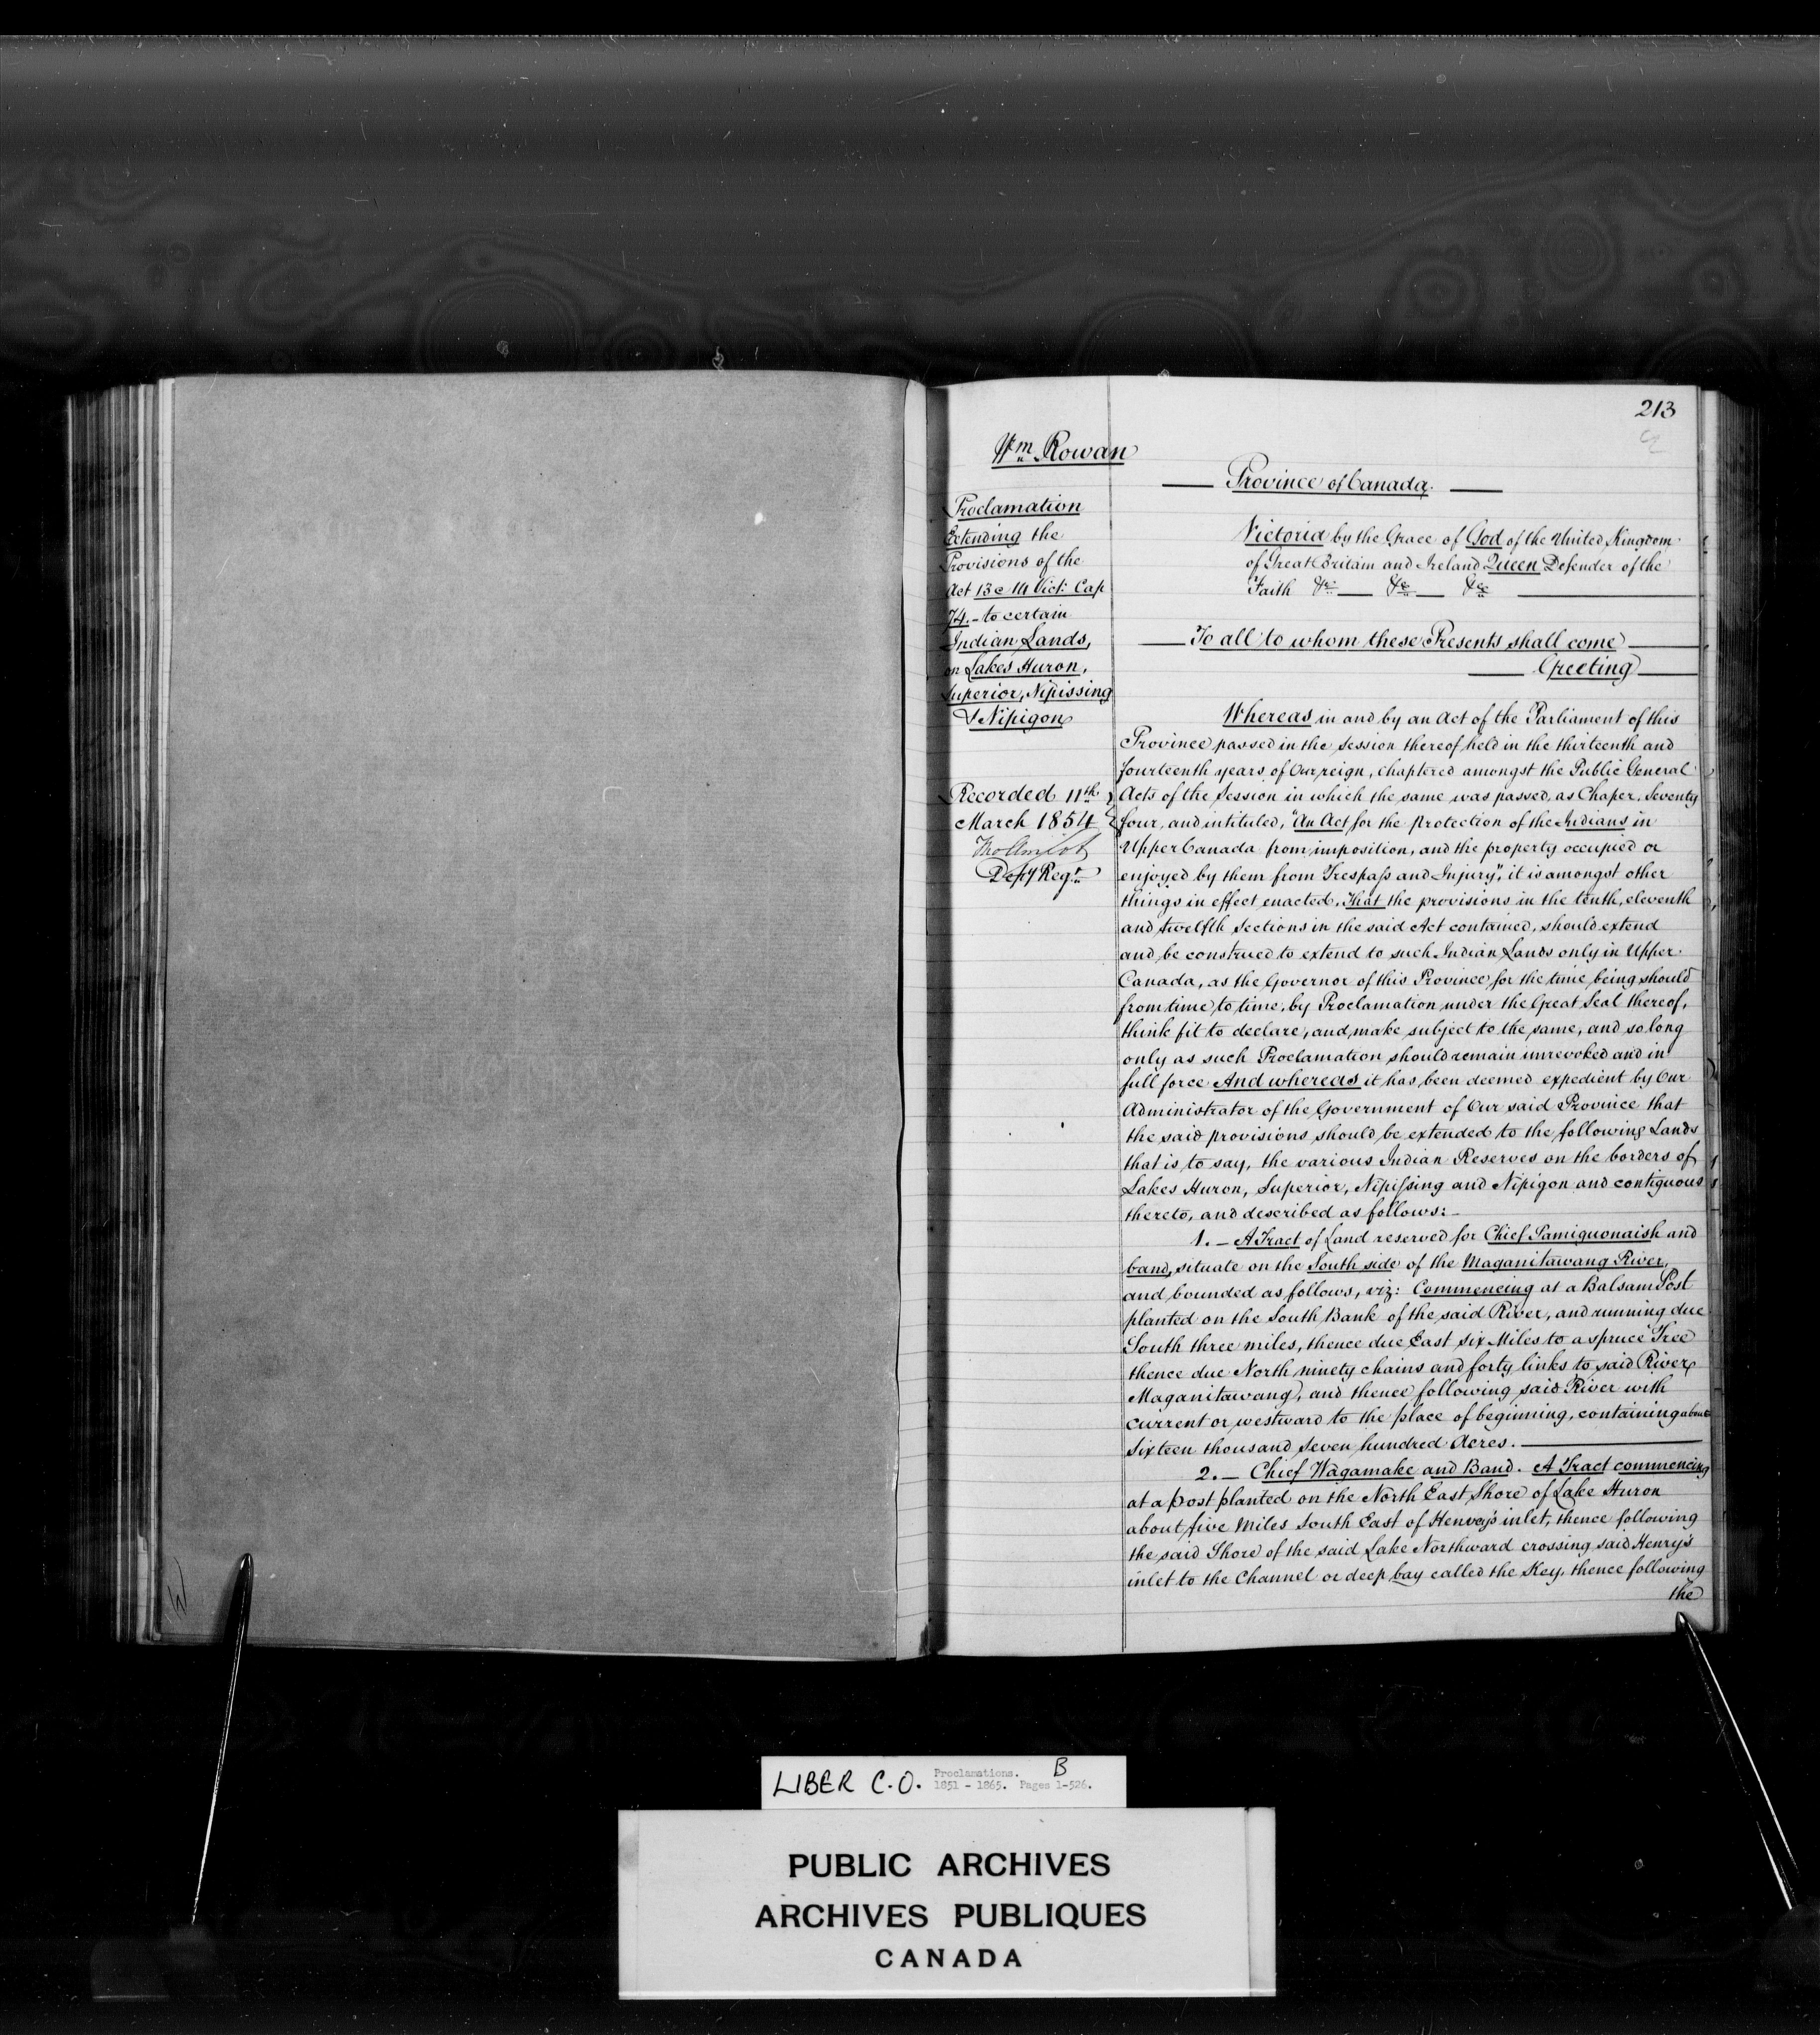 213
Wm. Rowan
Proclamation
Extending the
Provisions of the
Act 13 & 14 Vict: Cap
74. - to certain
Indian Lands,
on Lakes Huron,
Superior, Nipissing
& Nipigon
Recorded 11th
March 1854
Depy Regr.
Province of Canada.
Victoria by the Grace of God of the United Kingdom
of Great Britain and Ireland Queen Defender of the
Faith &c &c &c
To all to whom these Presents shall come
Greeting
Whereas in and by an Act of the Parliament of this
Province passed in the Session thereof held in the thirteenth and
fourteenth years of Our reign, chaptered amongst the Public General
Acts of the Session in which the same was passed, as Chaper, Seventy
four, and intituled, "An Act for the protection of the Indians in
Upper Canada from imposition, and the property occupied or
enjoyed by them from Trespass and Injury", it is amongst other
things in effect enacted, That the provisions in the tenth, eleventh
and twelfth Sections in the said Act contained, should extend
and be construed to extend to such Indian Lands only in Upper
Canada, as the Governor of this Province for the time being should
from time to time, by Proclamation under the Great Seal thereof,
think fit to declare, and make subject to the same, and so long
only as such Proclamation should remain unrevoked and in
full force And whereas it has been deemed expedient by Our
Administrator of the Government of Our said Province that
the said provisions should be extended to the following Lands
that is to say, the various Indian Reserves on the borders of
Lakes Huron, Superior, Nipissing and Nipigon and contiguous
thereto, and described as follows: -
1. - A Tract of Land reserved for Chief Pamiquonaish and
band, situate on the South side of the Maganitawang River,
and bounded as follows, viz: Commencing at a Balsam Post
planted on the South Bank of the said River, and running due
South three miles, thence due East six Miles to a spruce Tree
thence due North ninety chains and forty links to said River
Maganitawang, and thence following said River with
current or westward to the place of beginning, containing about
Sixteen thousand Seven hundred Acres.
2. - Chief Wagamake and Band. A Tract commencing
at a post planted on the North East Shore of Lake Huron
about five Miles South East of Henvey's inlet, thence following
the said Shore of the said Lake Northward crossing said Henry's
inlet to the Channel or deep bay called the Key, thence following
the
LIBER C.O. Proclamations. B
1851 - 1865. Pages 1-526.
PUBLIC ARCHIVES
ARCHIVES PUBLIQUES
CANADA